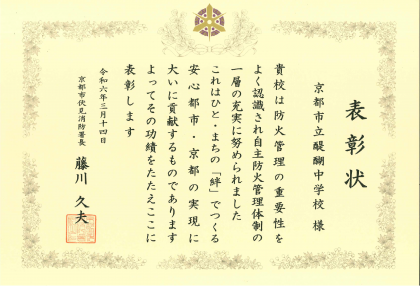 表彰状
京都市立醍醐中学校 様
貴校は防火管理の重要性を
よく認識され自主防火管理体制の
一層の充実に努められました
これはひと・まちの「絆」でつくる
安心都市・京都の実現に
大いに貢献するものであります
よってその功績をたたえここに
表彰します
令和六年三月十四日
京都市伏見消防署長 藤川 久夫